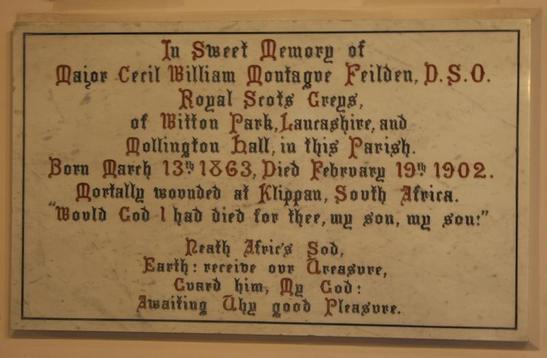 In Sweet Memory of
Major Cecil William Montague Feilden, D.S.O.
Royal Scots Greys,
of Witton Park, Lancashire, and
Mollington Hall, in this Parish.
Born March 13th 1863, Died February 19th 1902.
Mortally wounded at Klippan, South Africa.
"Would God I had died for thee, my son, my son!"
Neath Afric's Sod,
Earth: receive our Treasure,
Guard him, My God:
Awaiting Thy good Pleasure.